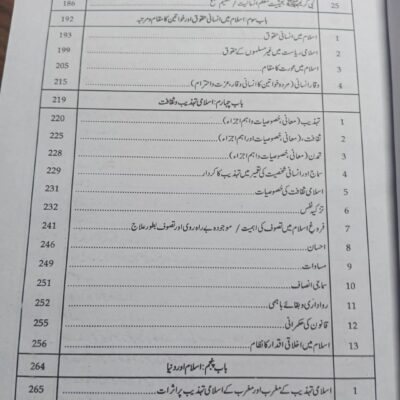 25 نبی کریم ﷺ بحیثیت معلم انسانیت / 186
باب سوم: اسلام میں انسانی حقوق اور خواتین کا مقام و مرتبہ 192
1 اسلام میں انسانی حقوق 193
2 اسلامی ریاست میں غیر مسلموں کے حقوق 199
3 اسلام میں عورت کا مقام 205
4 وقار انسانی (مرد و خواتین کا انسانی وقار، عزت و احترام) 215
باب چہارم: اسلامی تہذیب و ثقافت 219
1 تہذیب (معانی، خصوصیات و اہم اجزاء) 220
2 ثقافت، (معانی، خصوصیات اور اہم اجزاء) 225
3 تمدن (معانی، خصوصیات و اہم اجزاء) 228
4 سماج اور انسانی شخصیت کی تعمیر میں تہذیب کا کردار 229
5 اسلامی ثقافت کی خصوصیات 231
6 تزکیہ نفس 232
7 فروغ اسلام میں تصوف کی اہمیت / موجودہ بے راہ روی اور تصوف بطور علاج 241
8 احسان 246
9 مساوات 249
10 سماجی انصاف 251
11 رواداری و بقائے باہمی 252
12 قانون کی حکمرانی 255
13 اسلام میں اخلاقی اقدار کا نظام 256
باب پنجم: اسلام اور دنیا 264
1 اسلامی تہذیب کے مغرب اور مغرب کے اسلامی تہذیب پر اثرات 265